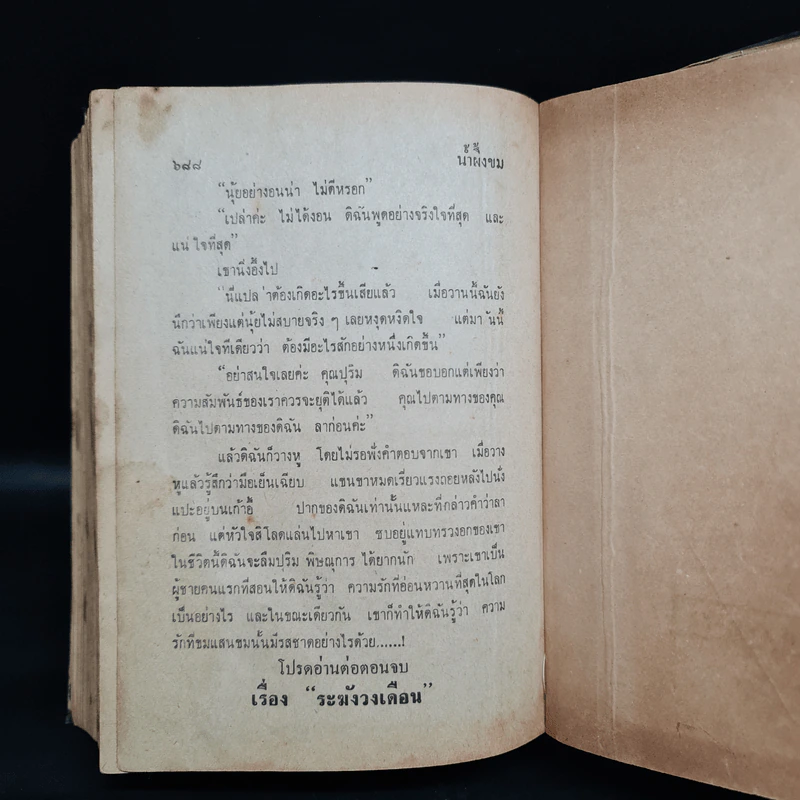 ๖๘๘ น้ำผึ้งขม
“นุ้ยอย่างอนน่า ไม่ดีหรอก”
“เปล่าค่ะ ไม่ได้งอน ดิฉันพูดอย่างจริงใจที่สุด และ
แน่ใจที่สุด”
เขานิ่งอึ้งไป
“นี่แปลว่าต้องเกิดอะไรขึ้นเสียแล้ว เมื่อวานนี้ฉันยัง
นึกว่าเพียงแต่นุ้ยไม่สบายจริง ๆ เลยหงุดหงิดใจ แต่มาวันนี้
ฉันแน่ใจทีเดียวว่า ต้องมีอะไรสักอย่างหนึ่งเกิดขึ้น”
“อย่าสนใจเลยค่ะ คุณปุริม ดิฉันขอบอกแต่เพียงว่า
ความสัมพันธ์ของเราควรจะยุติได้แล้ว คุณไปตามทางของคุณ
ดิฉันไปตามทางของดิฉัน ลาก่อนค่ะ”
แล้วดิฉันก็วางหู โดยไม่รอฟังคำตอบจากเขา เมื่อวาง
หูแล้วรู้สึกว่ามือเย็นเฉียบ แขนขาหมดเรี่ยวแรงถอยหลังไปนั่ง
แปะอยู่บนเก้าอี้ ปากของดิฉันเท่านั้นแหละที่กล่าวคำว่าลา
ก่อน แต่หัวใจสิโลดแล่นไปหาเขา ซบอยู่แทบทรวงอกของเขา
ในชีวิตนี้ดิฉันจะลืมปุริม พิษณุการ ได้ยากนัก เพราะเขาเป็น
ผู้ชายคนแรกที่สอนให้ดิฉันรู้ว่า ความรักที่อ่อนหวานที่สุดในโลก
เป็นอย่างไร และในขณะเดียวกัน เขาก็ทำให้ดิฉันรู้ว่า ความ
รักที่ขมแสนขมนั้นมีรสชาดอย่างไรด้วย......!
โปรดอ่านต่อตอนจบ
เรื่อง “ระฆังวงเดือน”